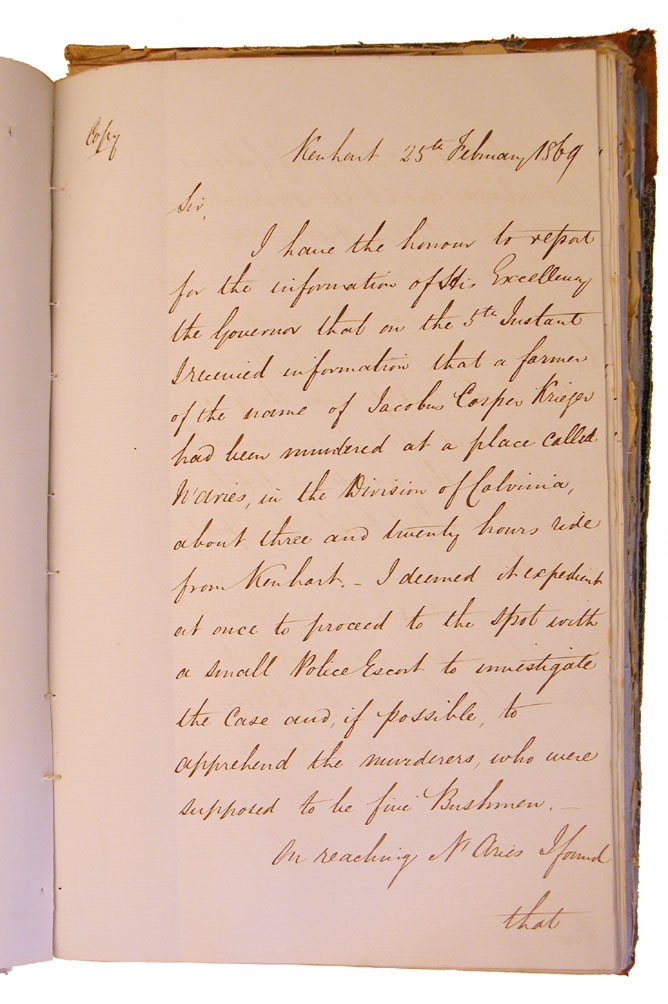 Copy
Kenhart 25th February 1869
Sir,
I have the honour to report
for the information of His Excellency
the Governor that on the 5th Instant
I received information that a farmer
of the name of Jacobus Casper Krieger
had been murdered at a place called
N'Aries, in the Division of Calvinia,
about three and twenty hours ride
from Kenhart. — I deemed it expedient
at once to proceed to the spot with
a small Police Escort to investigate
the Case and, if possible, to
apprehend the murderers, who were
supposed to be five Bushmen. —
On reaching N'Aries I found
that